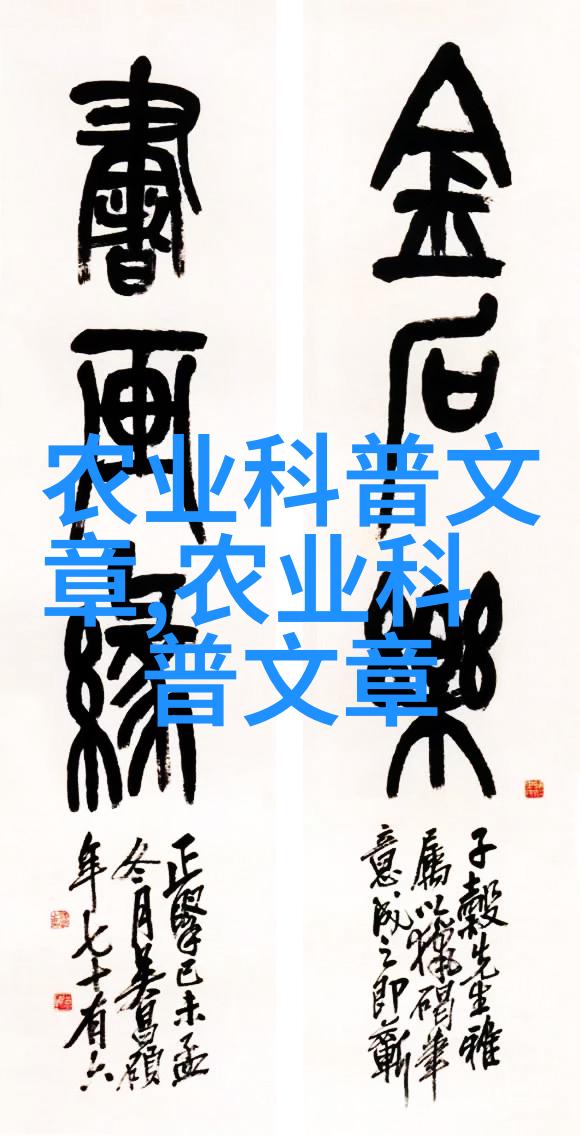 金石樂
子穀先生雅
屬以獵碣筆
意成之即蘄
書画緣
正擘己未孟
冬月吴昌碩
年七十有六
农业科普文
章,农业科
普文章